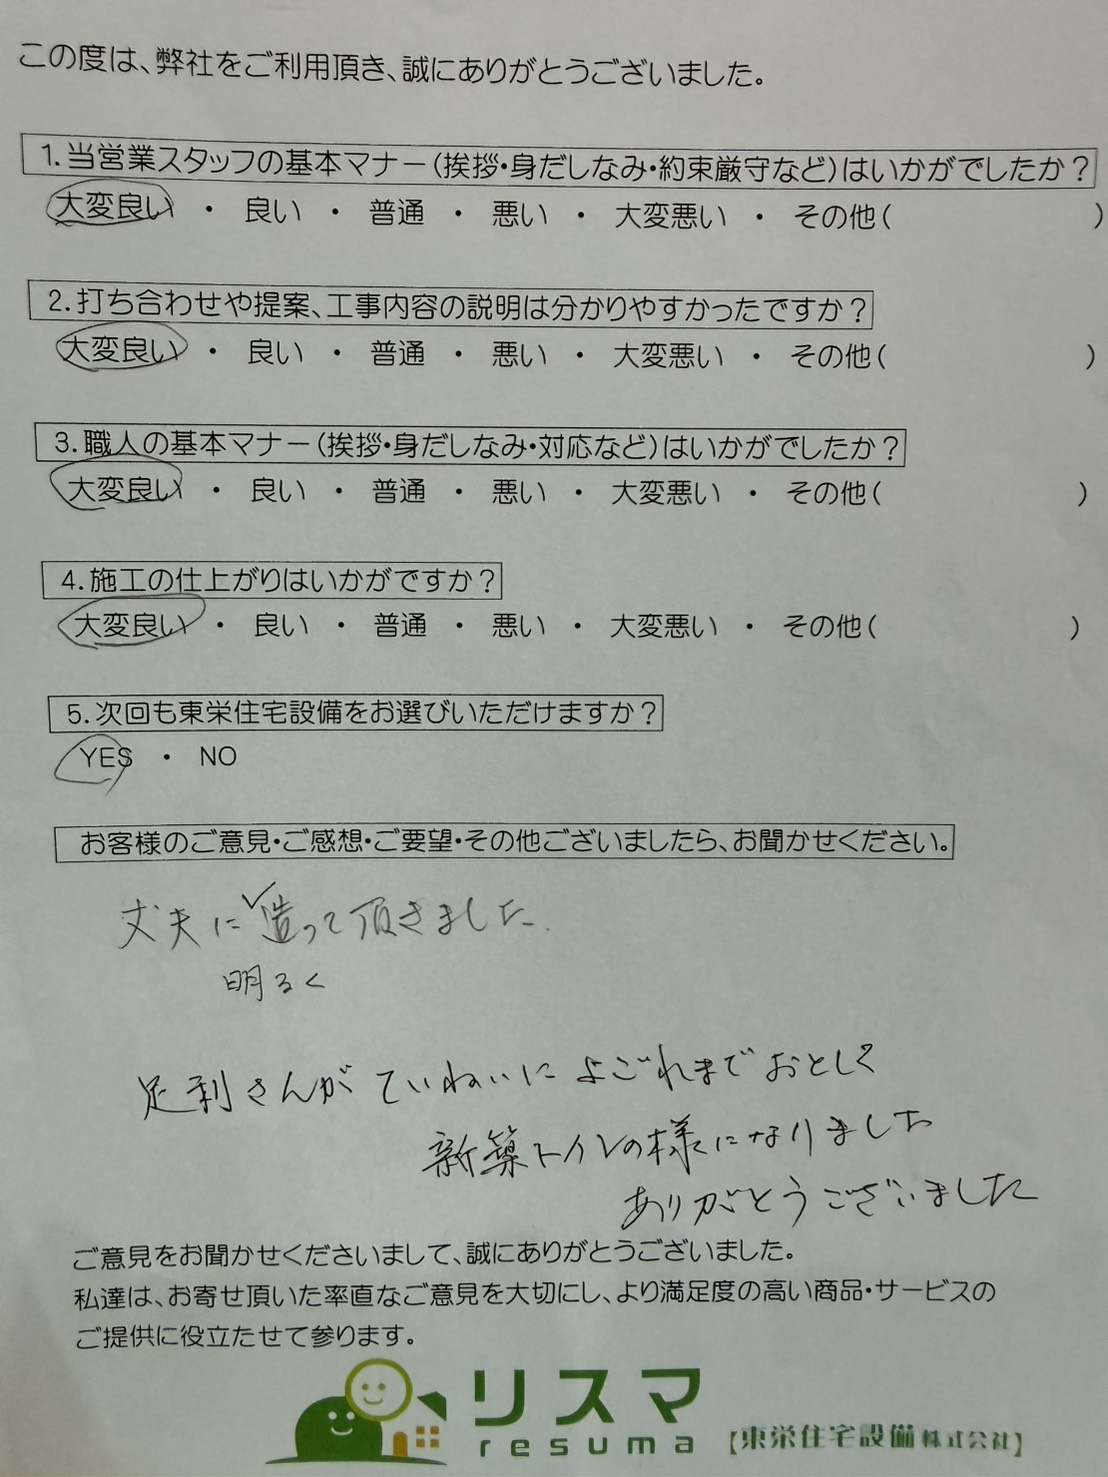 この度は、弊社をご利用頂き、誠にありがとうございました。
1.当営業スタッフの基本マナー(挨拶・身だしなみ・約束厳守など)はいかがでしたか?
大変良い ・ 良い ・ 普通 ・ 悪い ・ 大変悪い ・ その他( )
2.打ち合わせや提案、工事内容の説明は分かりやすかったですか?
大変良い ・ 良い ・ 普通 ・ 悪い ・ 大変悪い ・ その他( )
3.職人の基本マナー(挨拶・身だしなみ・対応など)はいかがでしたか?
大変良い ・ 良い ・ 普通 ・ 悪い ・ 大変悪い ・ その他( )
4.施工の仕上がりはいかがですか?
大変良い ・ 良い ・ 普通 ・ 悪い ・ 大変悪い ・ その他( )
5.次回も東栄住宅設備をお選びいただけますか?
YES ・ NO
お客様のご意見・ご感想・ご要望・その他ございましたら、お聞かせください。
丈夫に造って頂きました.
明るく
足利さんがていねいによごれまでおとして
新築トイレの様になりました
ありがとうございました
ご意見をお聞かせくださいまして、誠にありがとうございました。
私達は、お寄せ頂いた率直なご意見を大切にし、より満足度の高い商品・サービスの
ご提供に役立たせて参ります。
リスマ
resuma
【東栄住宅設備株式会社】